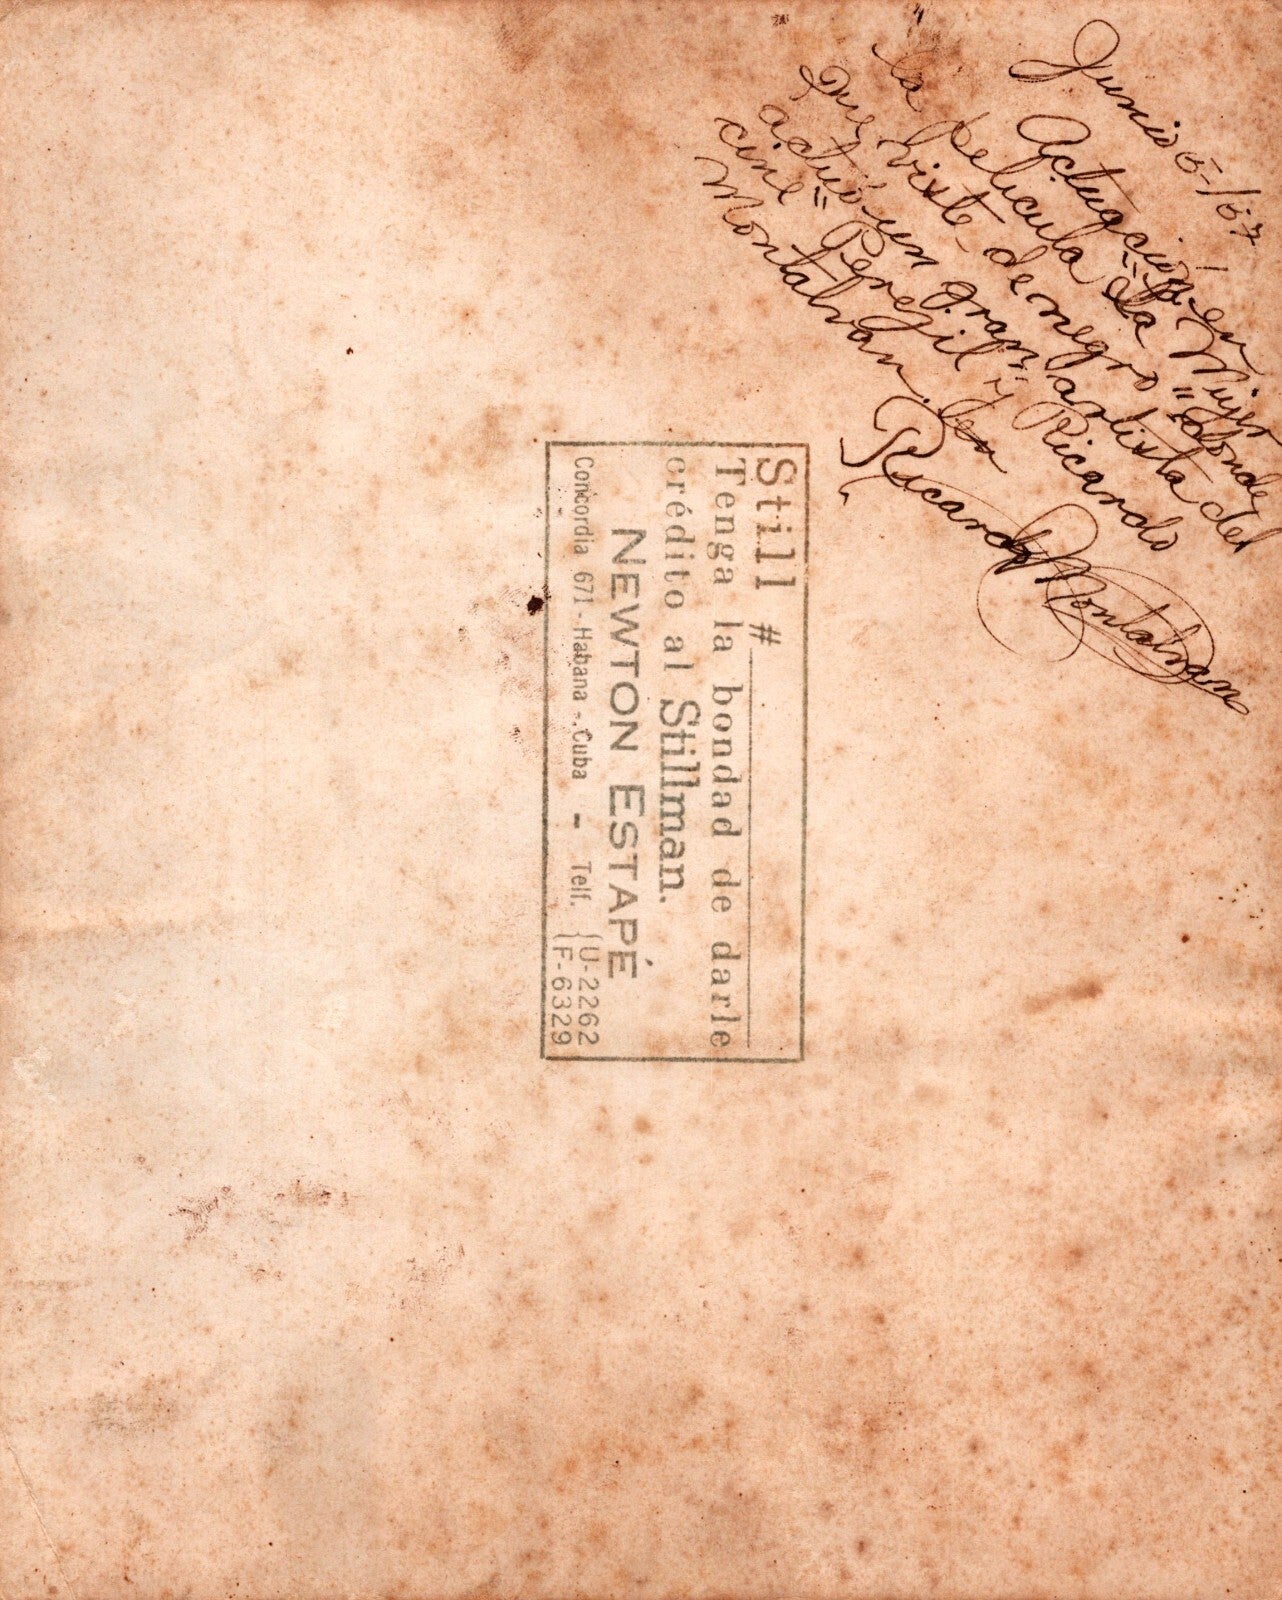 Junio 5-/67
Actuación en
la película "La Mujer
que viste de negro" donde
actuó un gran artista del
cine "Peregil" y Ricardo
Montalvan.
Ricardo Montalvan
Still #
Tenga la bondad de darle
crédito al Stillman.
NEWTON ESTAPÉ
Concordia 671 - Habana - Cuba - Telf. {U-2262
{F-6329